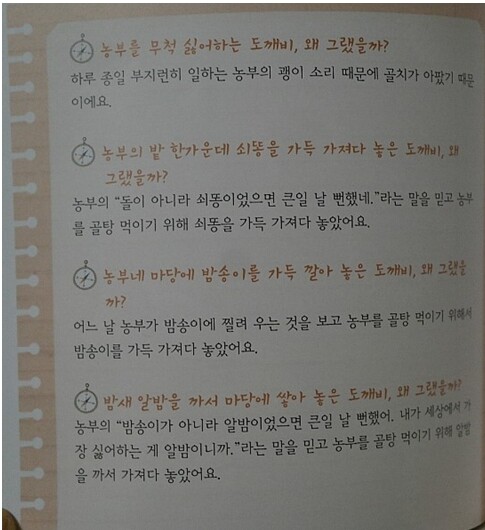 농부를 무척 싫어하는 도깨비, 왜 그랬을까?
하루 종일 부지런히 일하는 농부의 괭이 소리 때문에 골치가 아팠기 때문
이에요.
농부의 밭 한가운데 쇠똥을 가득 가져다 놓은 도깨비, 왜
그랬을까?
농부의 “돌이 아니라 쇠똥이었으면 큰일 날 뻔했네.”라는 말을 믿고 농부
를 골탕 먹이기 위해 쇠똥을 가득 가져다 놓았어요.
농부네 마당에 밤송이를 가득 깔아 놓은 도깨비, 왜 그랬을
까?
어느 날 농부가 밤송이에 찔려 우는 것을 보고 농부를 골탕 먹이기 위해서
밤송이를 가득 가져다 놓았어요.
밤새 알밤을 까서 마당에 쌓아 놓은 도깨비, 왜 그랬을까?
농부의 “밤송이가 아니라 알밤이었으면 큰일 날 뻔했어. 내가 세상에서 가
장 싫어하는 게 알밤이니까.”라는 말을 믿고 농부를 골탕 먹이기 위해 알밤
을 까서 가져다 놓았어요.